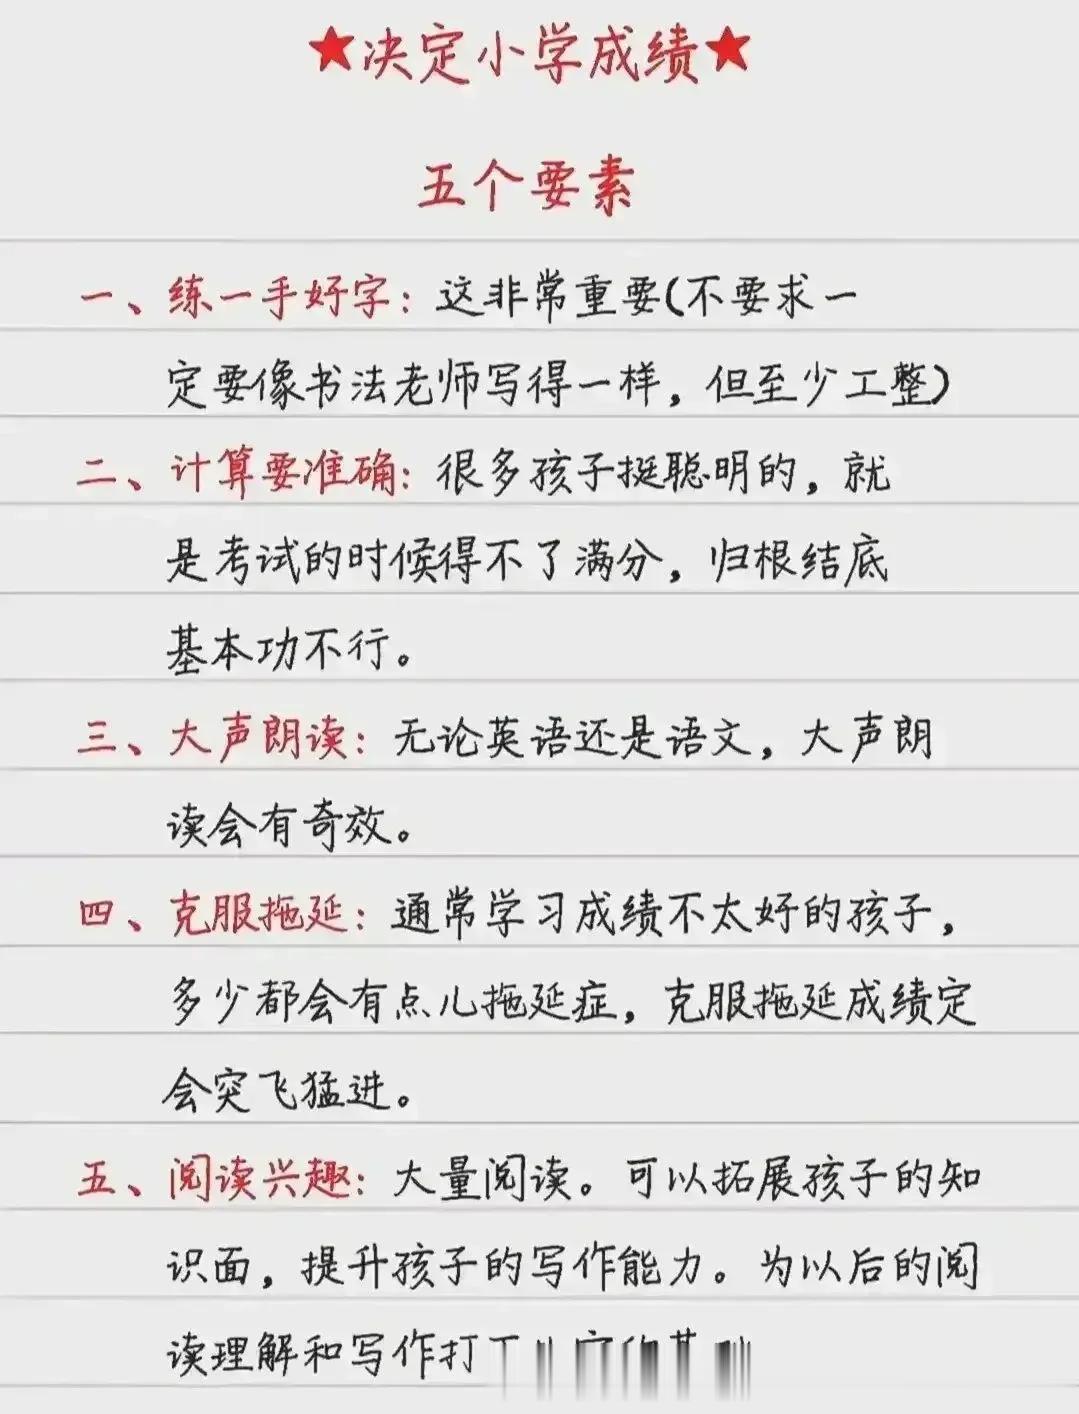 ★决定小学成绩★
五个要素
一、练一手好字：这非常重要(不要求一
定要像书法老师写得一样，但至少工整)
二、计算要准确：很多孩子挺聪明的，就
是考试的时候得不了满分，归根结底
基本功不行。
三、大声朗读：无论英语还是语文，大声朗
读会有奇效。
四、克服拖延：通常学习成绩不太好的孩子，
多少都会有点儿拖延症，克服拖延成绩定
会突飞猛进。
五、阅读兴趣：大量阅读。可以拓展孩子的知
识面，提升孩子的写作能力。为以后的阅
读理解和写作打